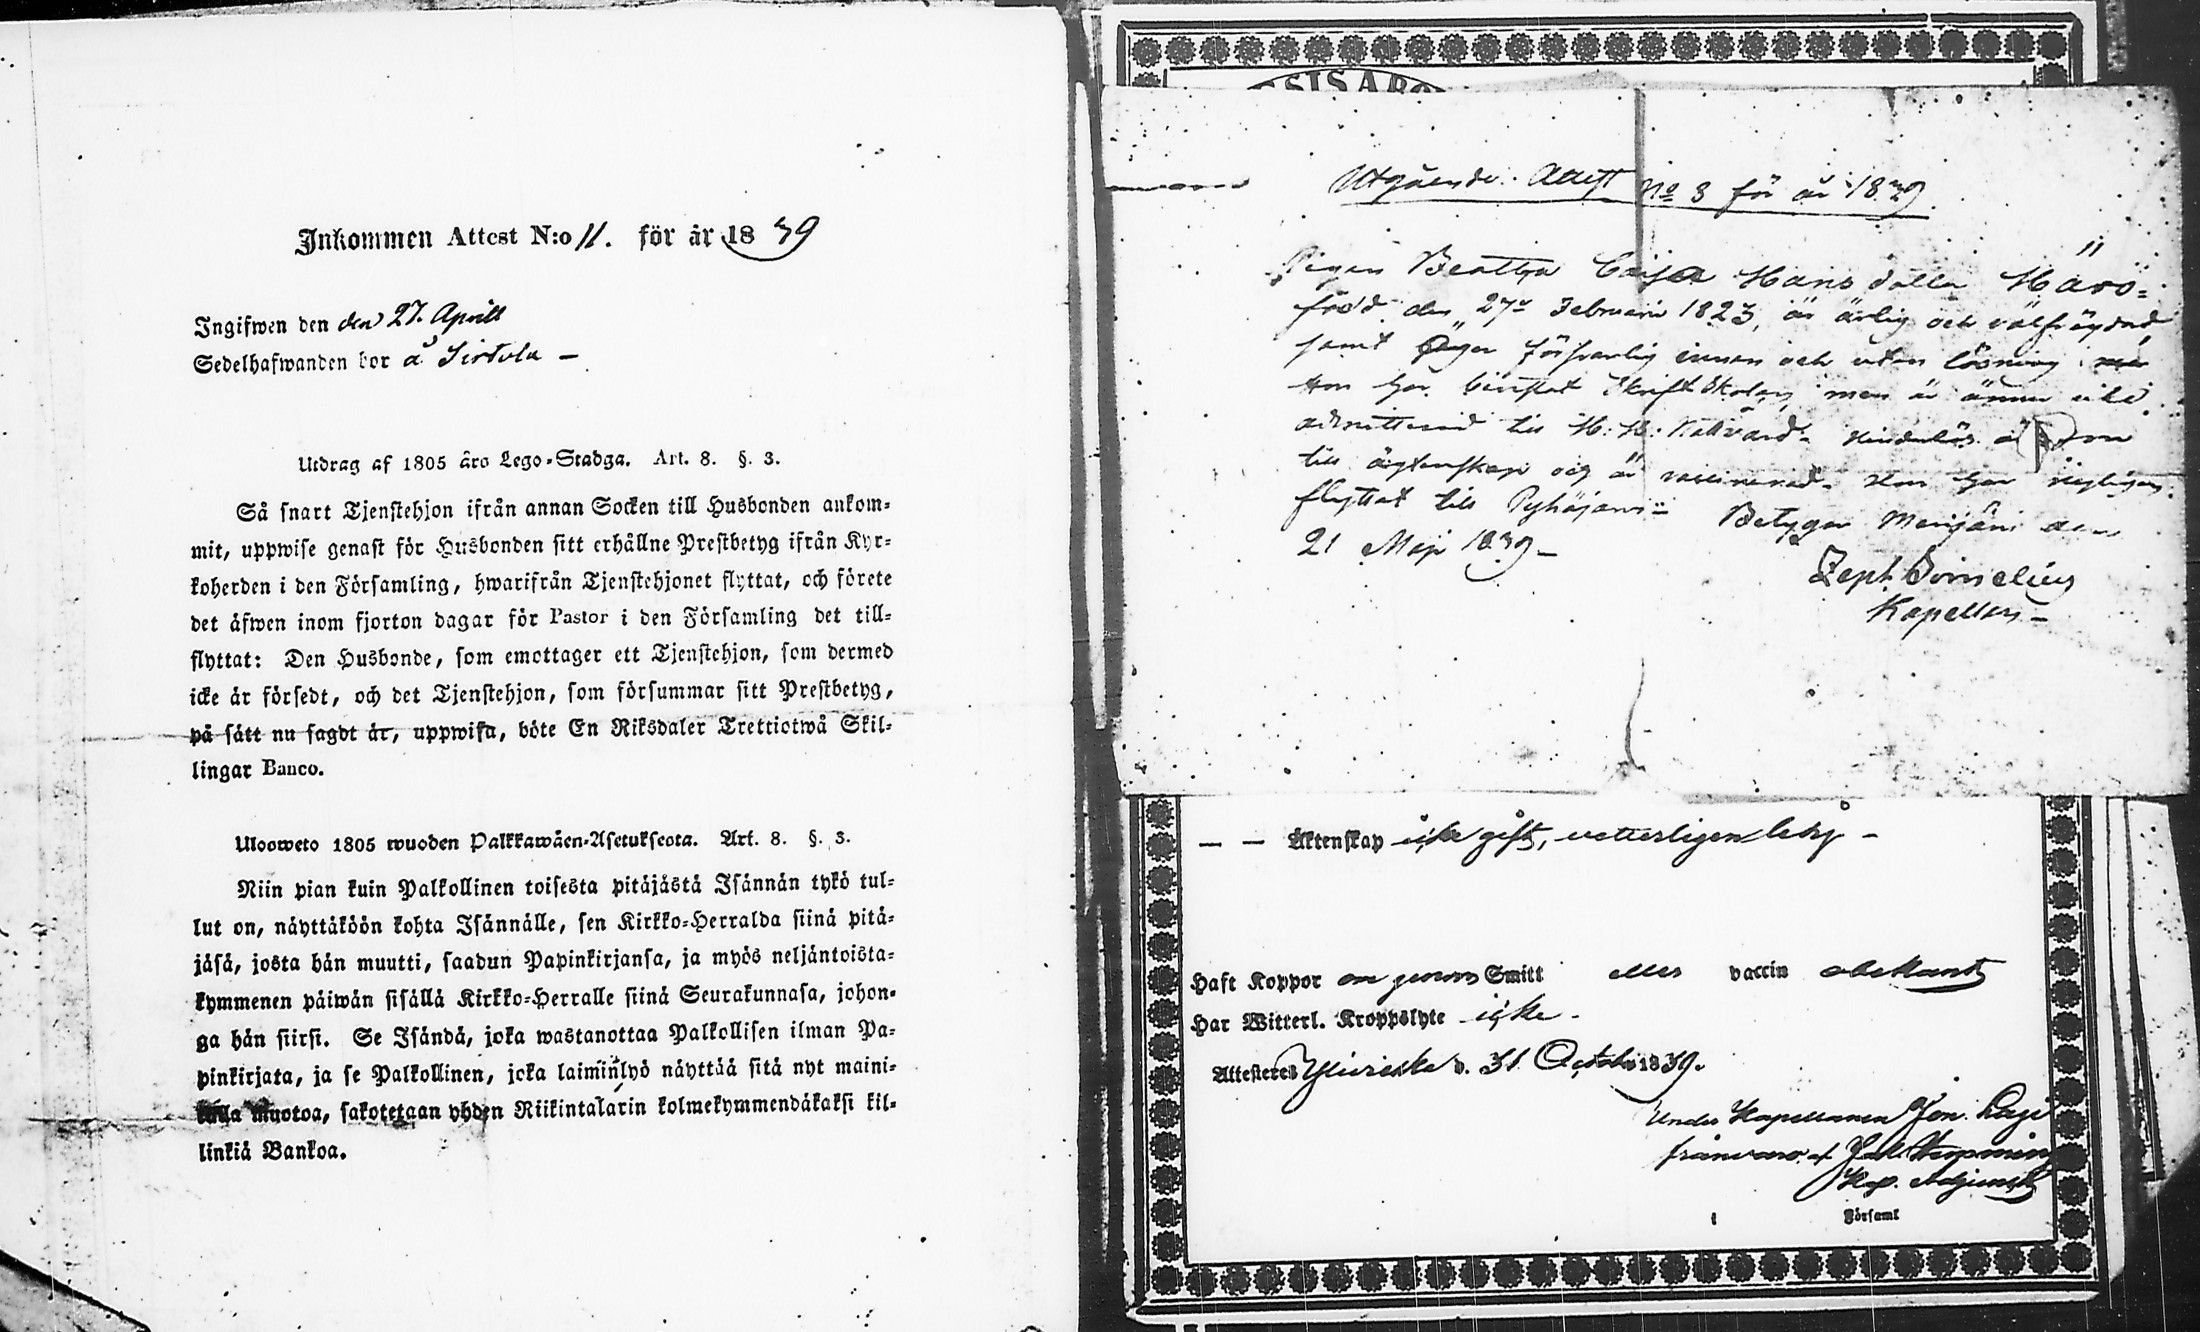 Inkommen Attest N:o 11. för år 1839
Ingifwen den den 27. Aprill
Sedelhafwanden bor å Sirtola –
Utdrag af 1805 års Lego-Stadga. Art. 8. §. 3.
Så snart Tjenstehjon ifrån annan Socken till Husbonden ankom-
mit, uppwise genast för Husbonden sitt erhållne Prestbetyg ifrån Kyr-
koherden i den Församling, hwarifrån Tjenstehjonet flyttat, och förete
det äfwen inom fjorton dagar för Pastor i den Församling det till-
flyttat: Den Husbonde, som emottager ett Tjenstehjon, som dermed
icke är försedt, och det Tjenstehjon, som försummar sitt Prestbetyg,
på sätt nu sagdt är, uppwisa, böte En Riksdaler Trettiotwå Skil-
lingar Banco.
Ulosweto 1805 wuoden Palkkawäen-Asetuksesta. Art. 8. §. 3.
Niin pian kuin Palkollinen toisesta pitäjästä Isännän tykö tul-
lut on, näyttäköön kohta Isännälle, sen Kirkko-Herralda siinä pitä-
jäsä, josta hän muutti, saadun Papinkirjansa, ja myös neljäntoista-
kymmenen päiwän sisällä Kirkko-Herralle siinä Seurakunnasa, johon-
ga hän siirsi. Se Isändä, joka wastanottaa Palkollisen ilman Pa-
pinkirjata, ja se Palkollinen, joka laiminlyö näyttää sitä nyt maini-
tulla muotoa, sakotetaan yhden Riikintalarin kolmekymmendäkaksi kil-
linkiä Bankoa.
SIS ABO
Utgående Attest No 3 för år 1839
Pigan Beatha Caisa Hansdotter Härö-
född den 27de Februarii 1823, är ärlig och välfrägdad,
samt äger försvarlig innan och utan läsning
Hon har bevistat Skriftskolan men är ännu icke
admitterad till H: H: Nattvard. Hinderlös är hon
till ägtenskap och är vaccinerad. Hon har
flyttat till Pyhäjärvi. Betygar
21 Maji 1839 –
Zeph. Cornelius
Kapellan –
— — Äktenskap icke gift, vetterligen ledig –
Haft Koppor genom Smitt eller vaccin obekant
Har Witterl. Kroppslyte icke –
Attesteres d. 31 October 1839.
Under Kapellanen Jon. Lagi
frånvaro af
Kap. Adjunct
Församl